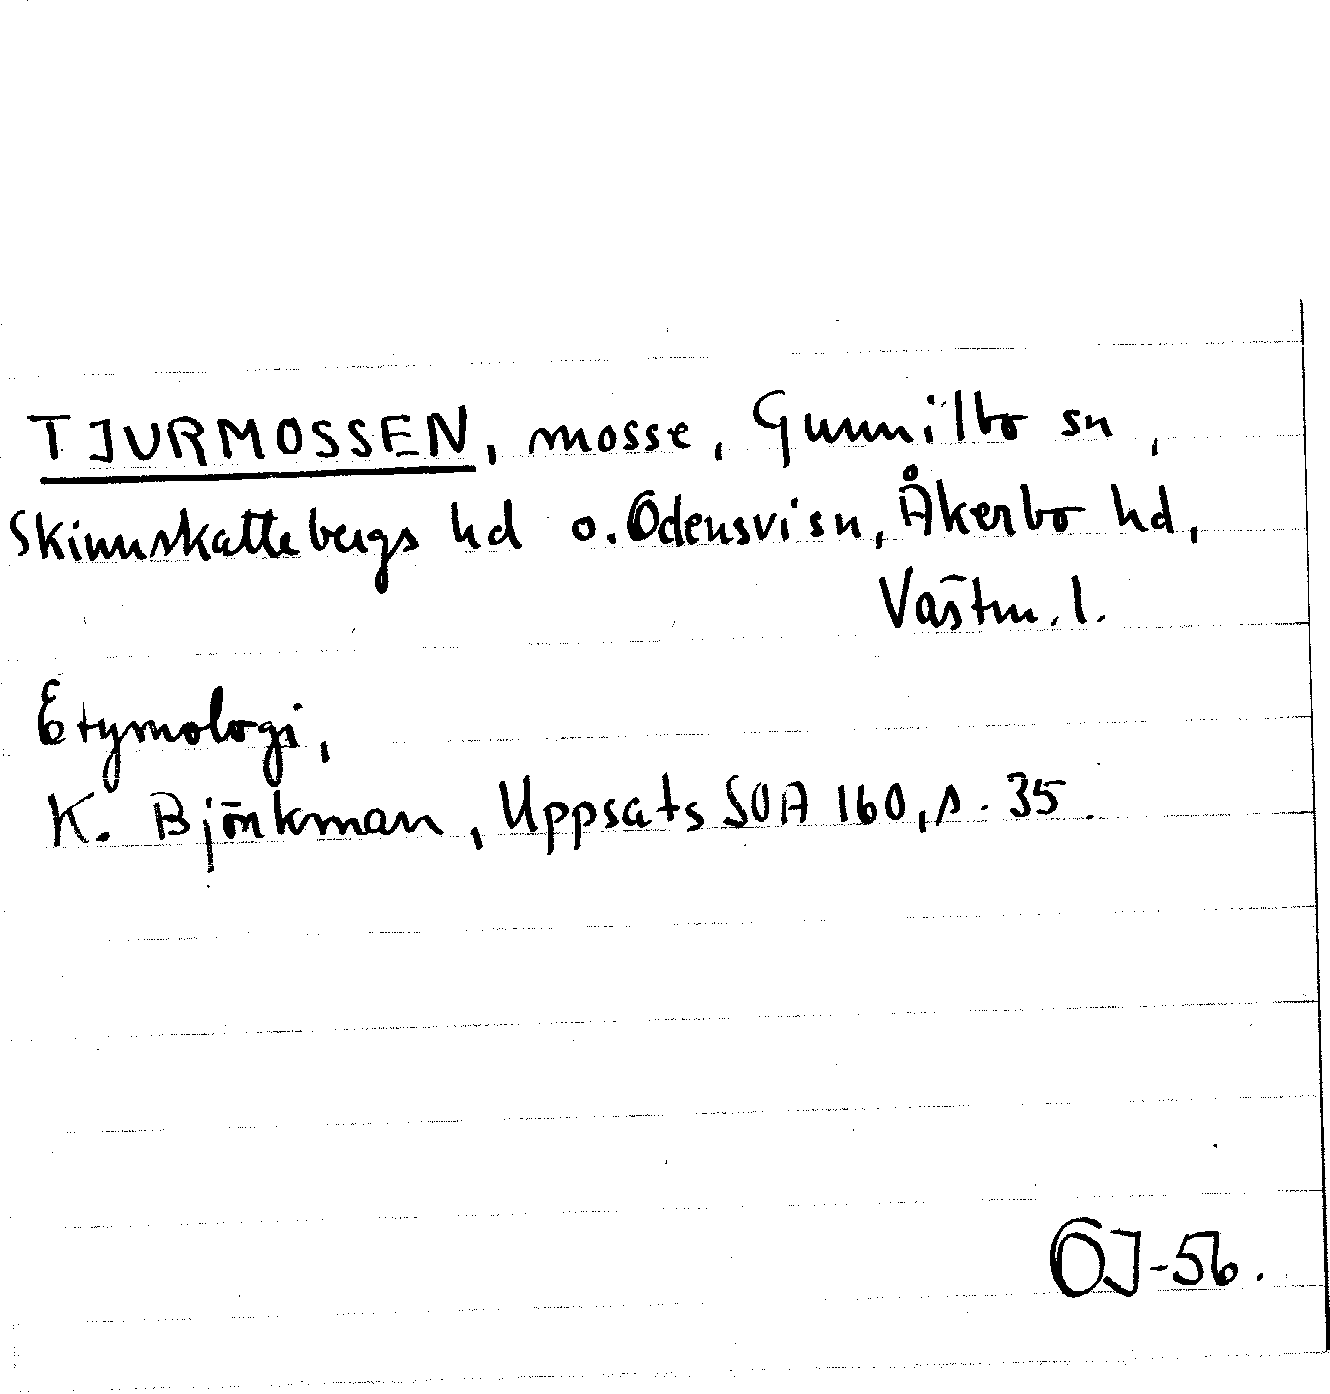 TJURMOSSEN, mosse, Gunnilbo sn,
Skinnskattebergs hd o. Odensvi sn, Åkerbo hd,
Västm. l.
Etymologi,
K. Björkman, Uppsats SOA 160, s. 35.
ÖJ-56.